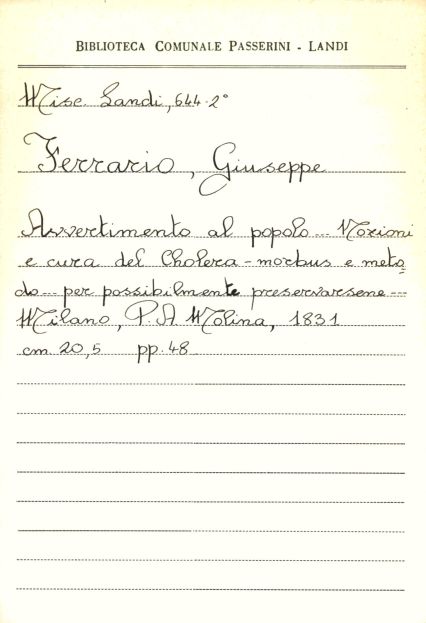 BIBLIOTECA COMUNALE PASSERINI - LANDI
Misc. Landi, 644.2°
Ferrario, Giuseppe
Avvertimento al popolo... Nozioni
e cura del Cholera-morbus e meto
do... per possibilmente preservarsene...
Milano, P. A. Molina, 1831
cm. 20,5 pp. 48